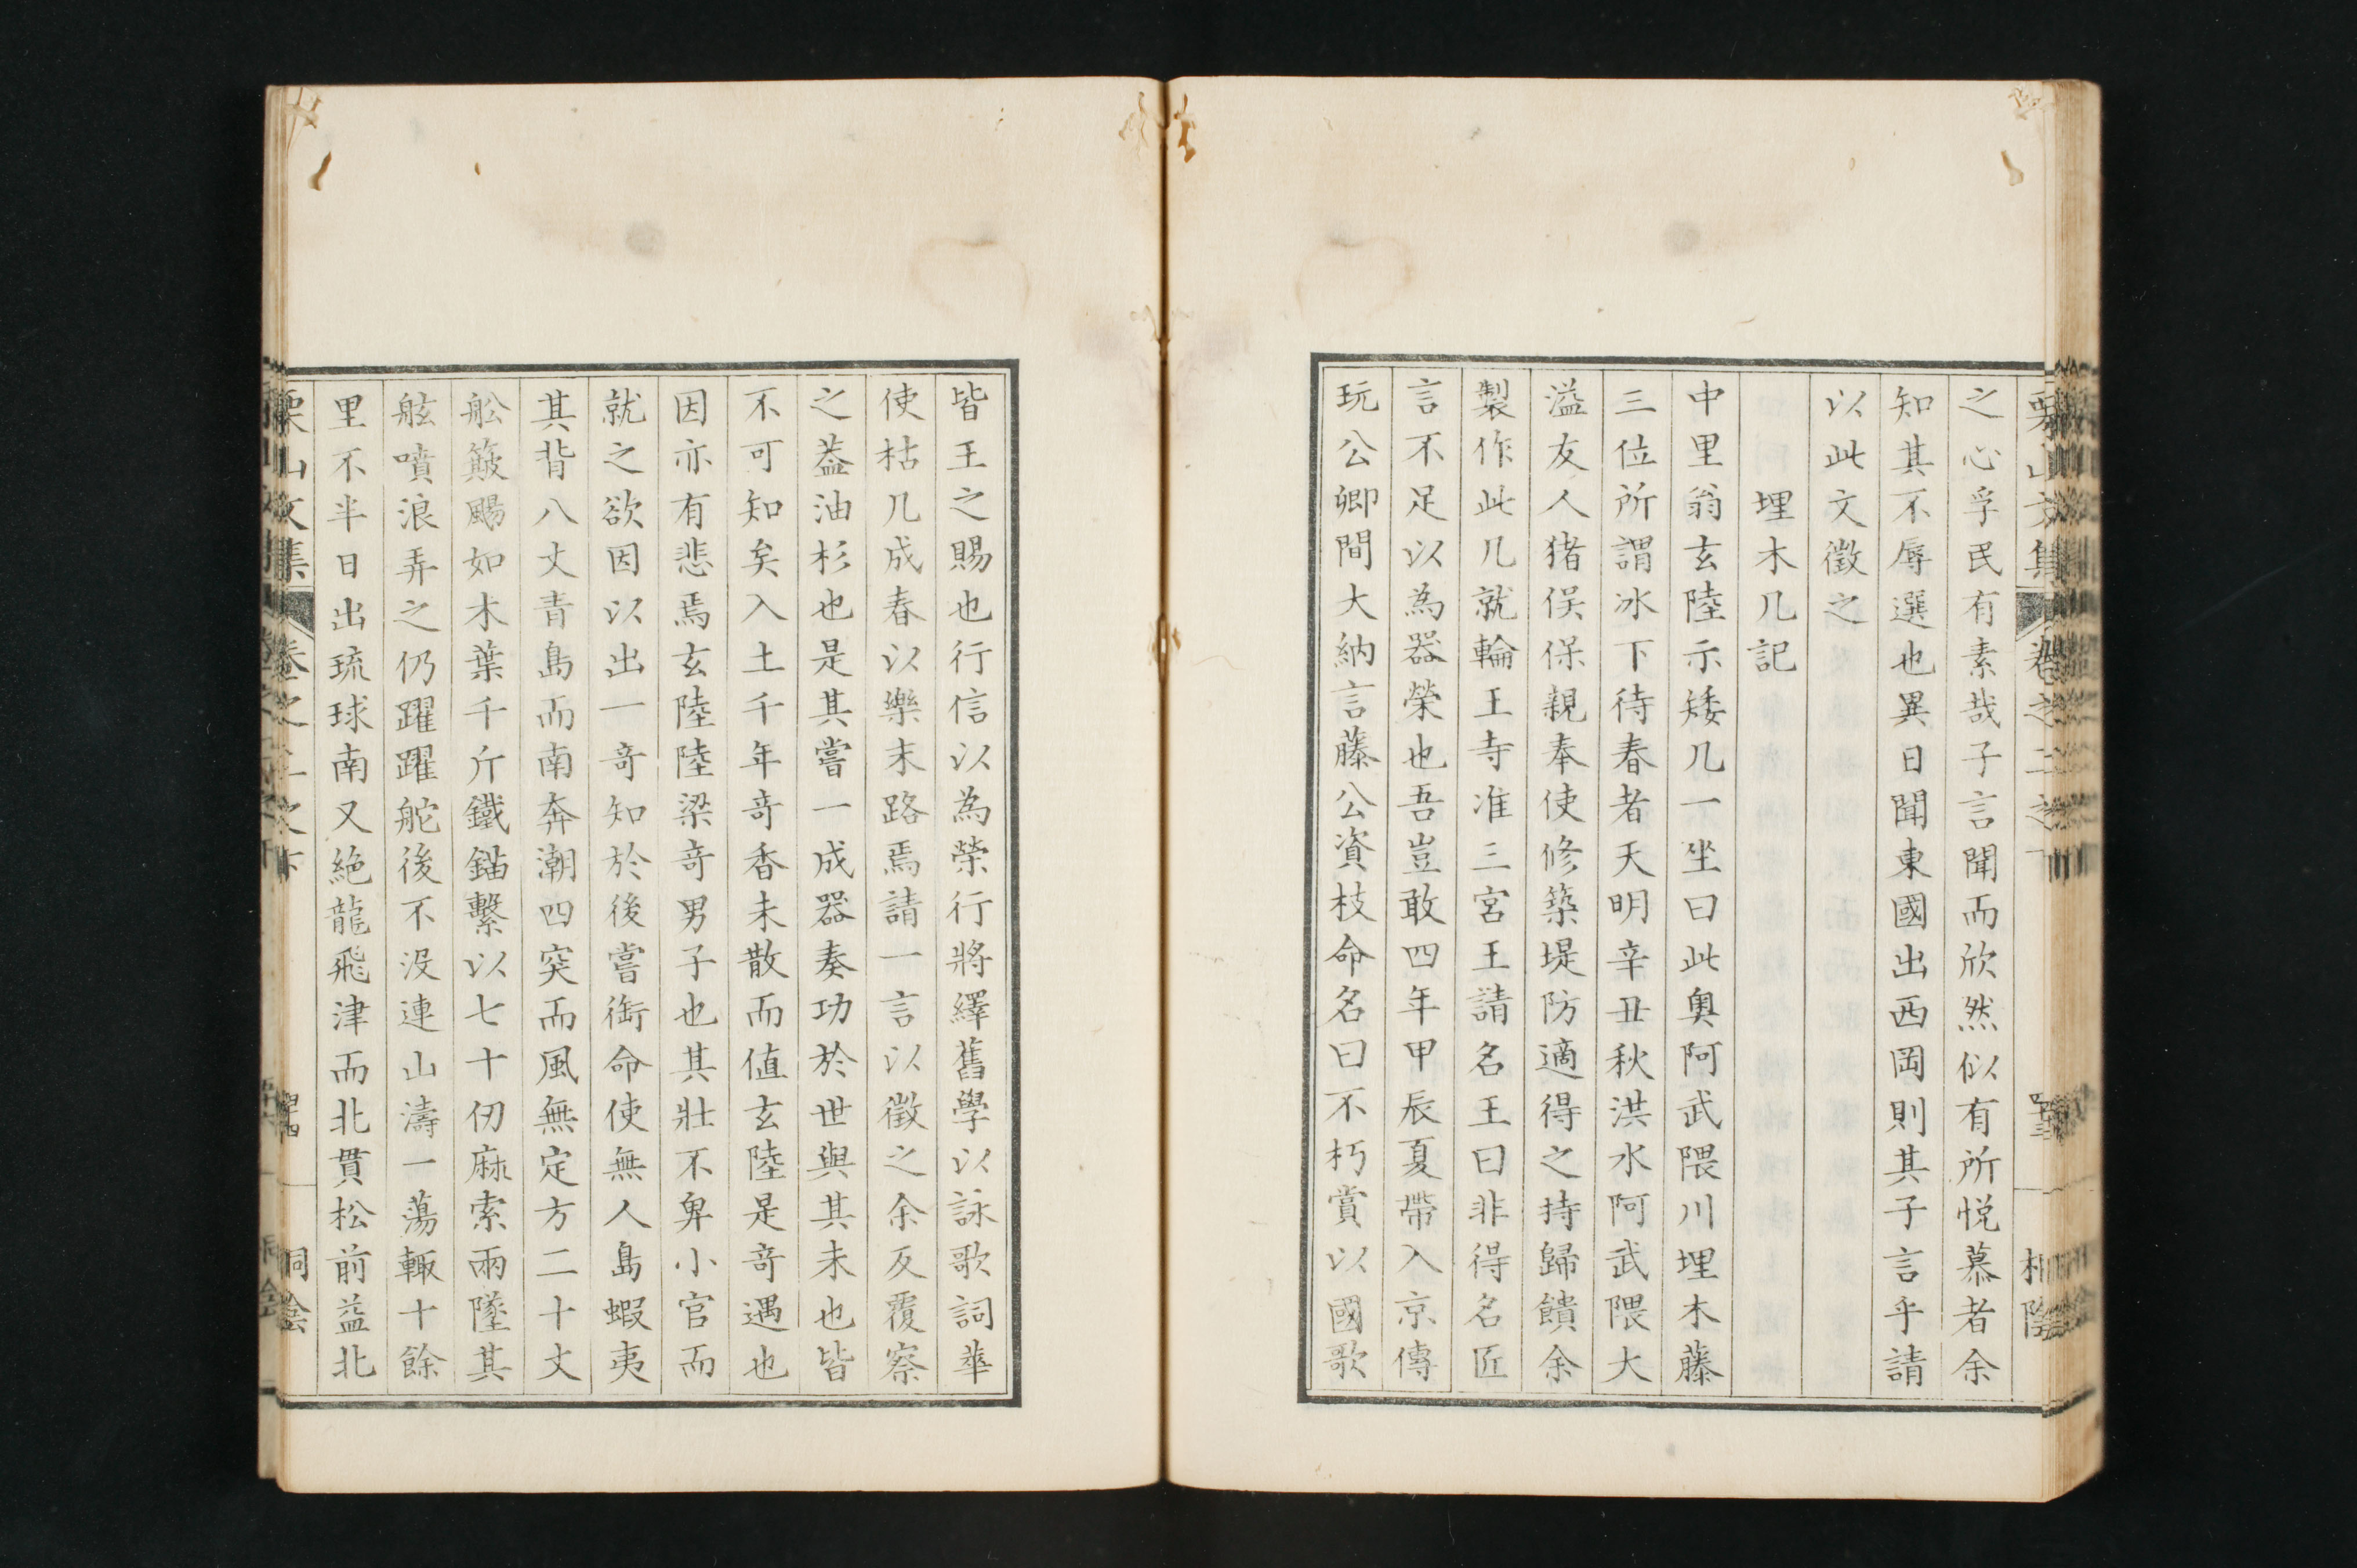 之心孚民有素哉子言聞而欣然似有所悦慕者余
知其不辱選也異日聞東國出西岡則其子言乎請
以此文徵之
埋木几記
中里翁玄陸示矮几一坐曰此奥阿武隈川埋木藤
三位所謂冰下待春者天明辛丑秋洪水阿武隈大
溢友人猪俣保親奉使修築堤防適得之持歸饋余
製作此几就輪王寺准三宮王請名王曰非得名匠
言不足以為器榮也吾豈敢四年甲辰夏帶入京傳
玩公卿間大納言藤公資枝命名曰不朽賞以國歌
皆王之賜也行信以為榮行將繹舊學以詠歌詞華
使枯几成春以樂末路焉請一言以徵之余反覆察
之蓋油杉也是其嘗一成器奏功於世與其未也皆
不可知矣入土千年竒香未散而値玄陸是竒遇也
因亦有悲焉玄陸陸梁竒男子也其壯不卑小官而
就之欲因以出一竒知於後嘗銜命使無人島蝦夷
其背八丈青島而南奔潮四突而風無定方二十丈
舩簸颺如木葉千斤鐵錨繫以七十仞麻索兩墜其
舷噴浪弄之仍躍躍舵後不没連山濤一蕩輙十餘
里不半日出琉球南又絶龍飛津而北貫松前益北
栗山文集
卷之二之下